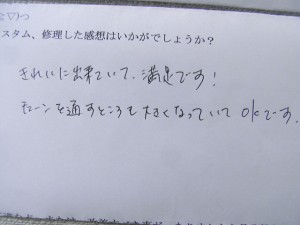 スタム、修理した感想はいかがでしょうか？
きれいに出来ていて、満足です！
チェーンを通すところも大きくなっていてOKです。